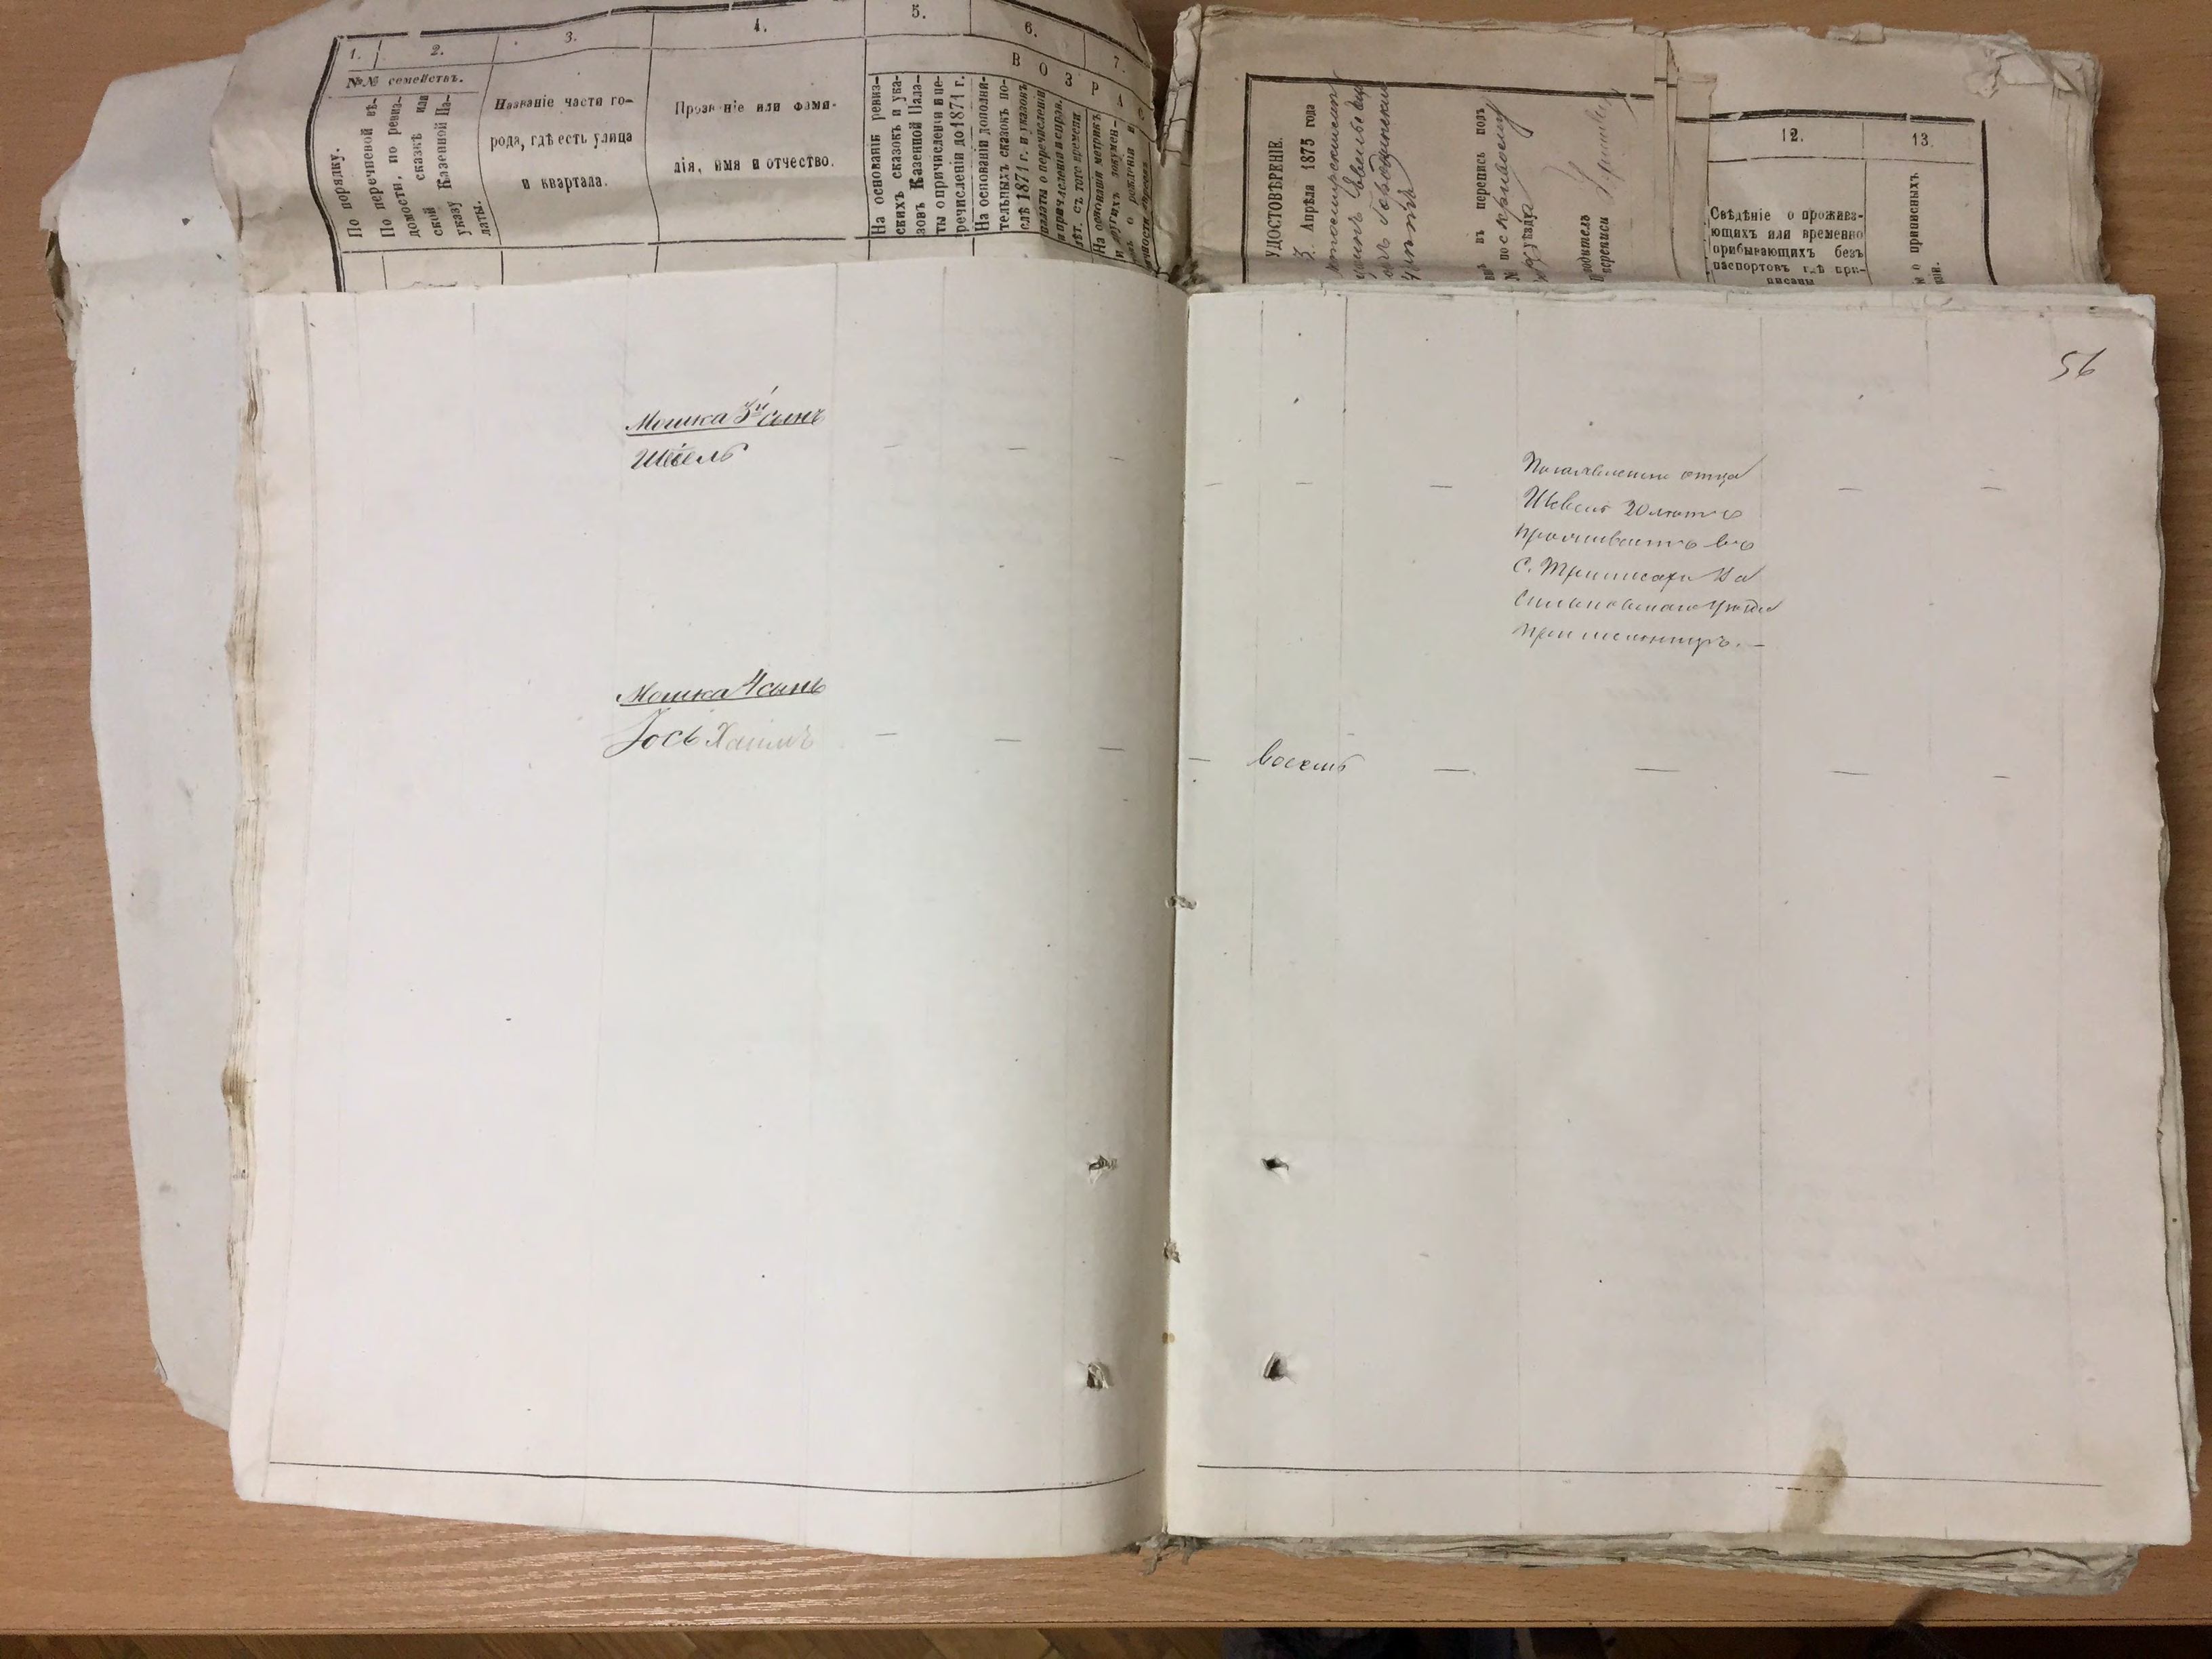 1. 2. 3. 4. 5. 6. 7.
№№ семействъ.
По порядку.
По перечневой вѣ-
домости, по ревиз-
ской сказкѣ или
указу Казенной Па-
латы.
Названіе части го-
рода, гдѣ есть улица
и квартала.
Прозваніе или фами-
лія, имя и отчество.
ВОЗРАС
На основаніи ревиз-
скихъ сказокъ и ука-
зовъ Казенной Пала-
ты о причисленіи и пе-
речисленіи до 1871 г.
На основаніи дополни-
тельныхъ сказокъ по-
слѣ 1871 г. и указовъ
палаты о перечисленіи
и причисленіи и справ.
лѣт. съ того времени
На основаніи метрикъ
и другихъ докумен-
о рожденіи и
УДОСТОВѢРЕНІЕ.
3. Апрѣля 1875 года
въ перепись подъ
№
уѣзда
переписи
12. 13.
Свѣдѣніе о прожива-
ющихъ или временно
прибывающихъ безъ
паспортовъ гдѣ при-
писаны
о приписныхъ
Мошка 3й сынъ
Шевель
Мошка 4 сынъ
Іось Хаимъ
56
По заявленію отца
Шевель 20 лѣтъ
проживаетъ въ
с. Триписахъ Ва
сильковскаго уѣзда
при меламдѣ. —
восемь